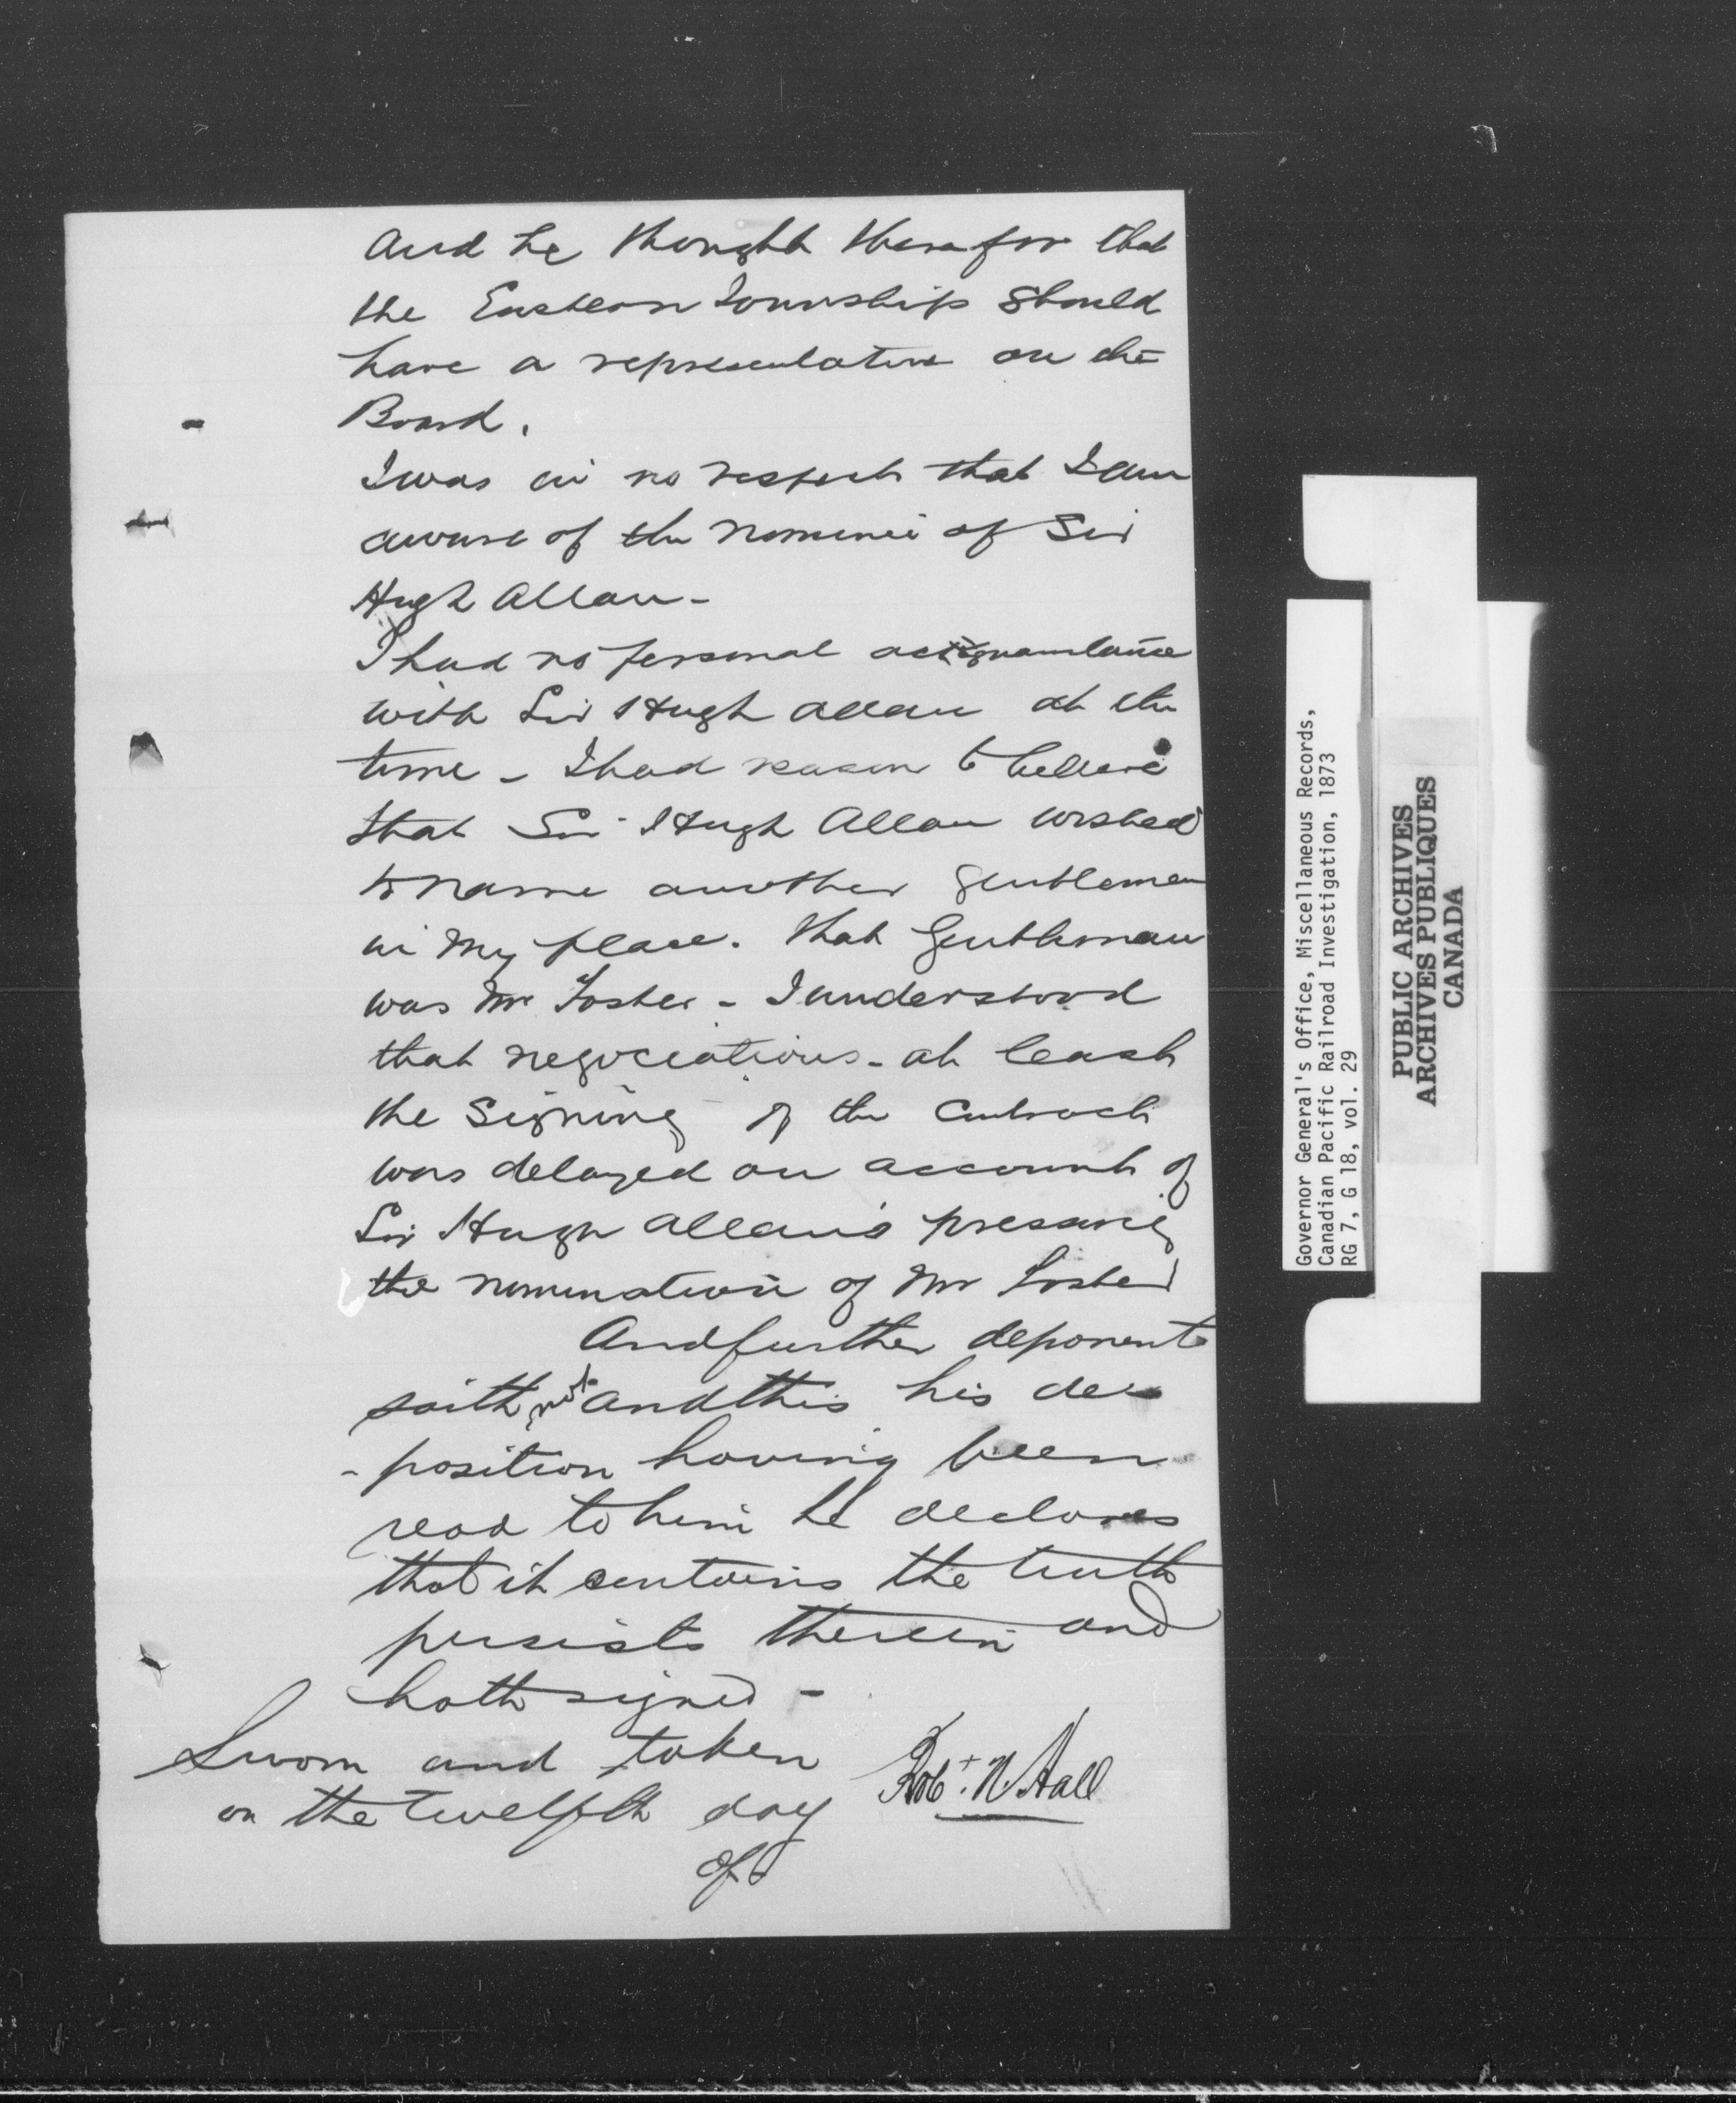 and he thought therefor that
the Eastern Townships should
have a representative on the
Board.
I was in no respect that I am
aware of the nominee of Sir
Hugh Allan -
I had no personal acquaintance
with Sir Hugh Allan at the
time - I had reason to believe
that Sir Hugh Allan wished
to name another gentleman
in my place. That Gentleman
was Mr Foster - I understood
that negociations - at least
the signing of the Contract
was delayed on account of
Sir Hugh Allan's pressing
the nomination of Mr Foster
And further deponent
saith not and this his de
- position having been
read to him he declares
that it contains the truth
persists therein and
hath signed -
Sworn and taken
on the twelfth day
of
Robt. N. Hall
Governor General's Office, Miscellaneous Records,
Canadian Pacific Railroad Investigation, 1873
RG 7, G 18, vol. 29
PUBLIC ARCHIVES
ARCHIVES PUBLIQUES
CANADA